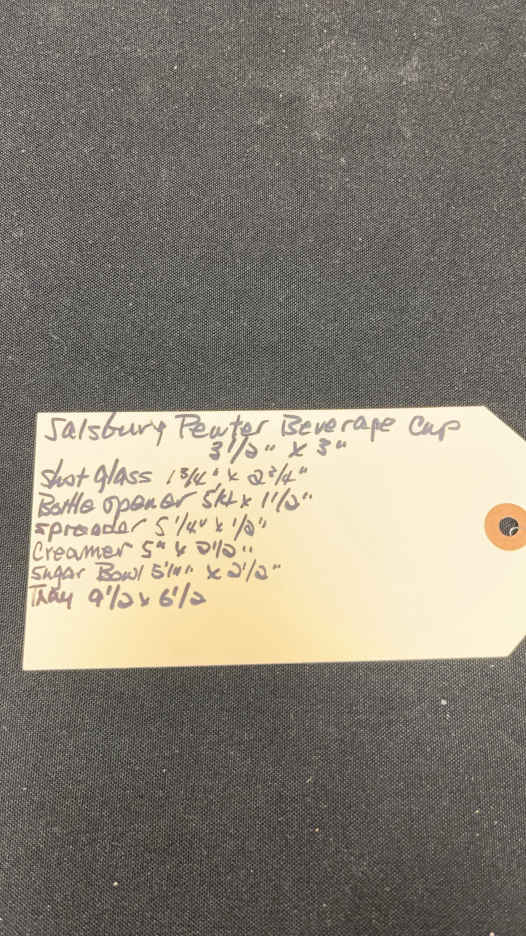 Salsbury Pewter Beverage Cup
3 1/2" x 3"
Shot glass 1 3/4" x 2 3/4"
Bottle opener x 1 1/2"
spreader 5 1/4" x 1/2"
Creamer 5" x 2 1/2"
Sugar Bowl x 2 1/2"
Tray 9 1/2 x 6 1/2